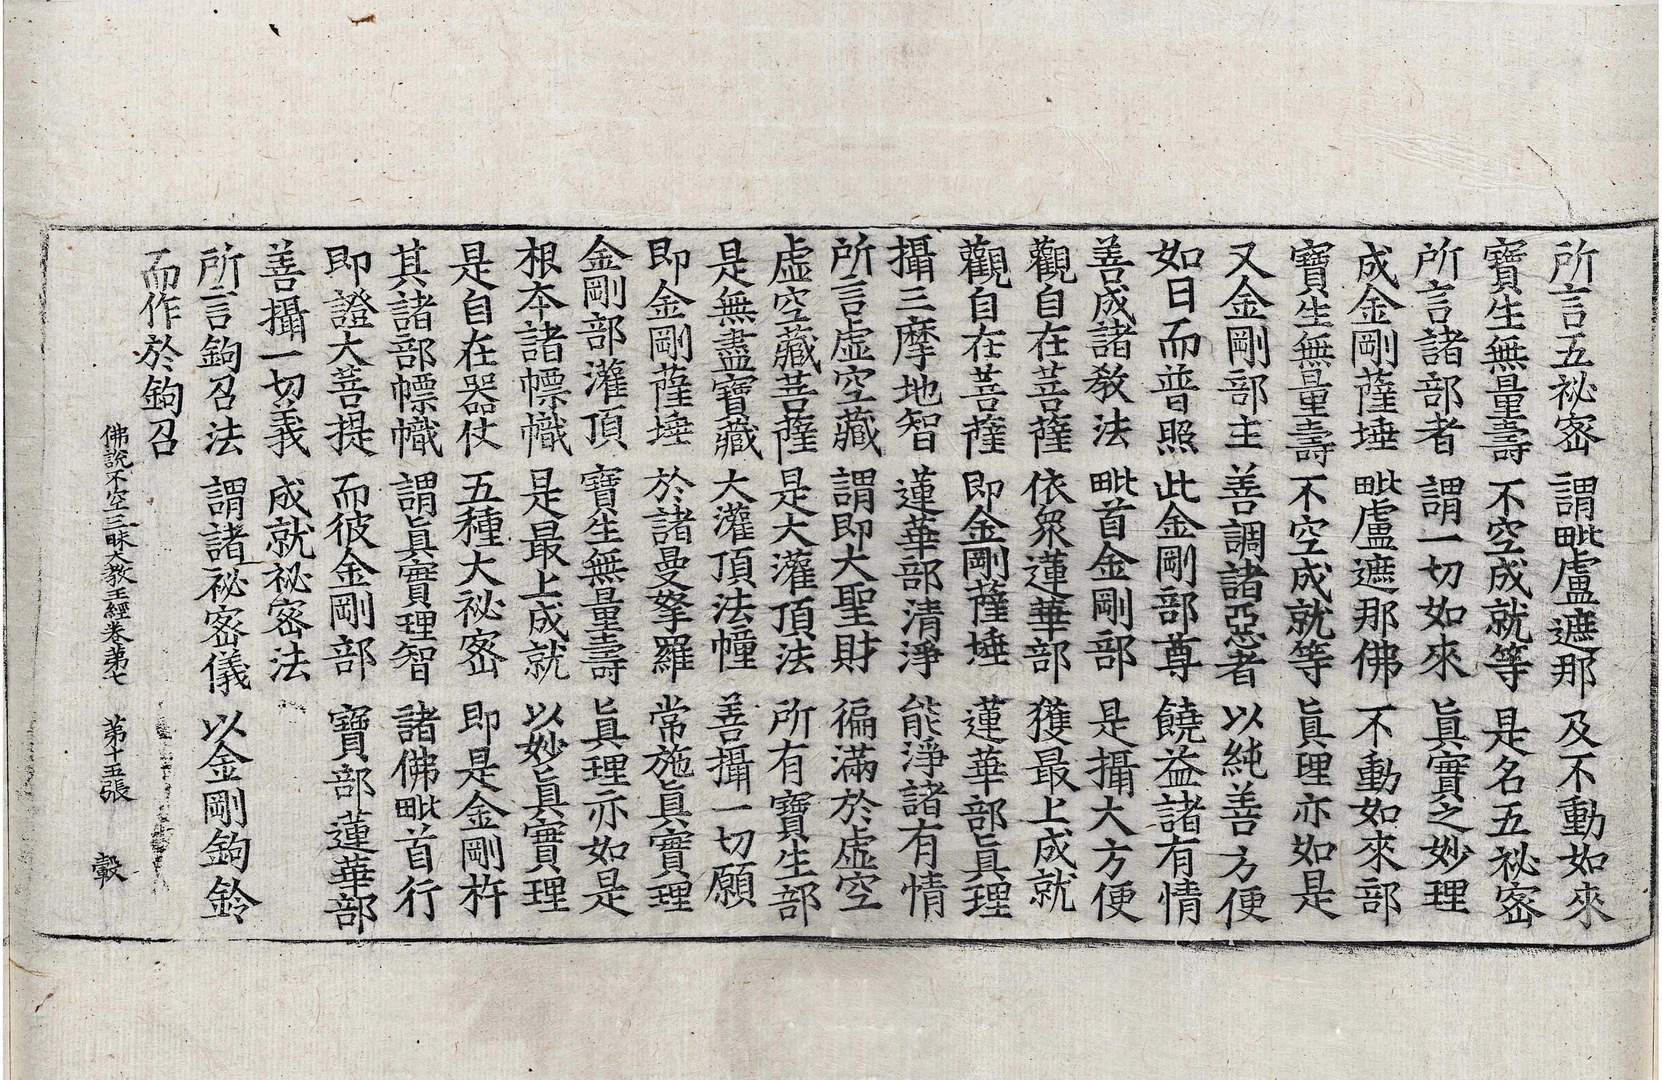 所言五祕密　謂毗盧遮那　及不動如來
寶生無量壽　不空成就等　是名五祕密
所言諸部者　謂一切如來　眞實之妙理
成金剛薩埵　毗盧遮那佛　不動如來部
寶生無量壽　不空成就等　眞理亦如是
又金剛部主　善調諸惡者　以純善方便
如日而普照　此金剛部尊　饒益諸有情
善成諸教法　毗首金剛部　是攝大方便
觀自在菩薩　依衆蓮華部　獲最上成就
觀自在菩薩　即金剛薩埵　蓮華部眞理
攝三摩地智　蓮華部清淨　能淨諸有情
所言虛空藏　謂即大聖財　徧滿於虛空
虛空藏菩薩　是大灌頂法　所有寶生部
是無盡寶藏　大灌頂法幢　善攝一切願
即金剛薩埵　於諸曼拏羅　常施眞實理
金剛部灌頂　寶生無量壽　眞理亦如是
根本諸幖幟　是最上成就　以妙眞實理
是自在器仗　五種大祕密　即是金剛杵
其諸部幖幟　謂眞實理智　諸佛毗首行
即證大菩提　而彼金剛部　寶部蓮華部
善攝一切義　成就祕密法
所言鉤召法　謂諸祕密儀　以金剛鉤鈴
而作於鉤召
佛說不空三昧大教王經卷第七　第十五張　轂